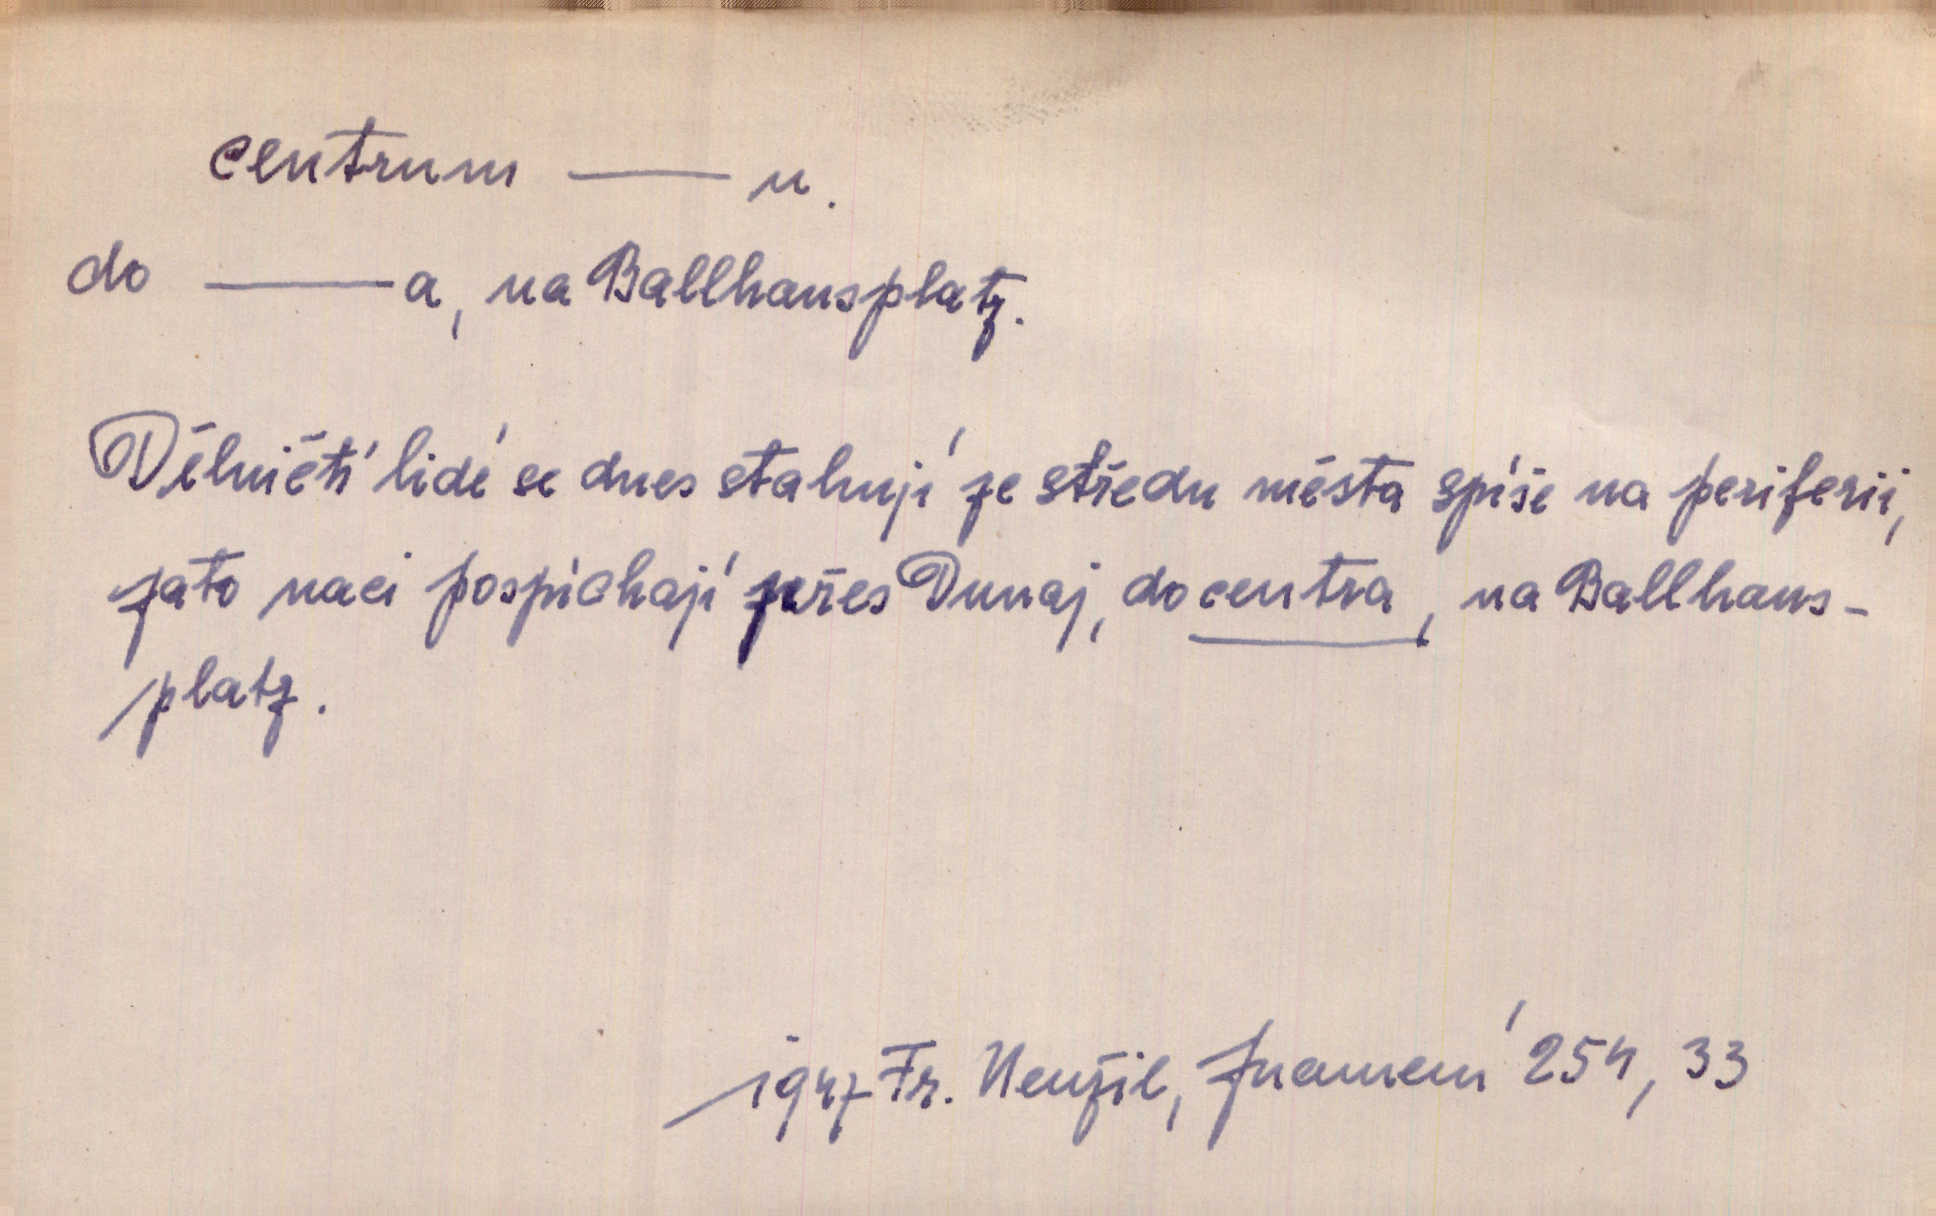 centrum —— n.
do ——a, na Ballhausplatz.
Dělničtí lidé se dnes stahují ze středu města spíše na periferii,
zato naci pospíchají přes Dunaj, do centra, na Ballhaus-
platz.
1947 Fr. Neužil, Znamení 254, 33